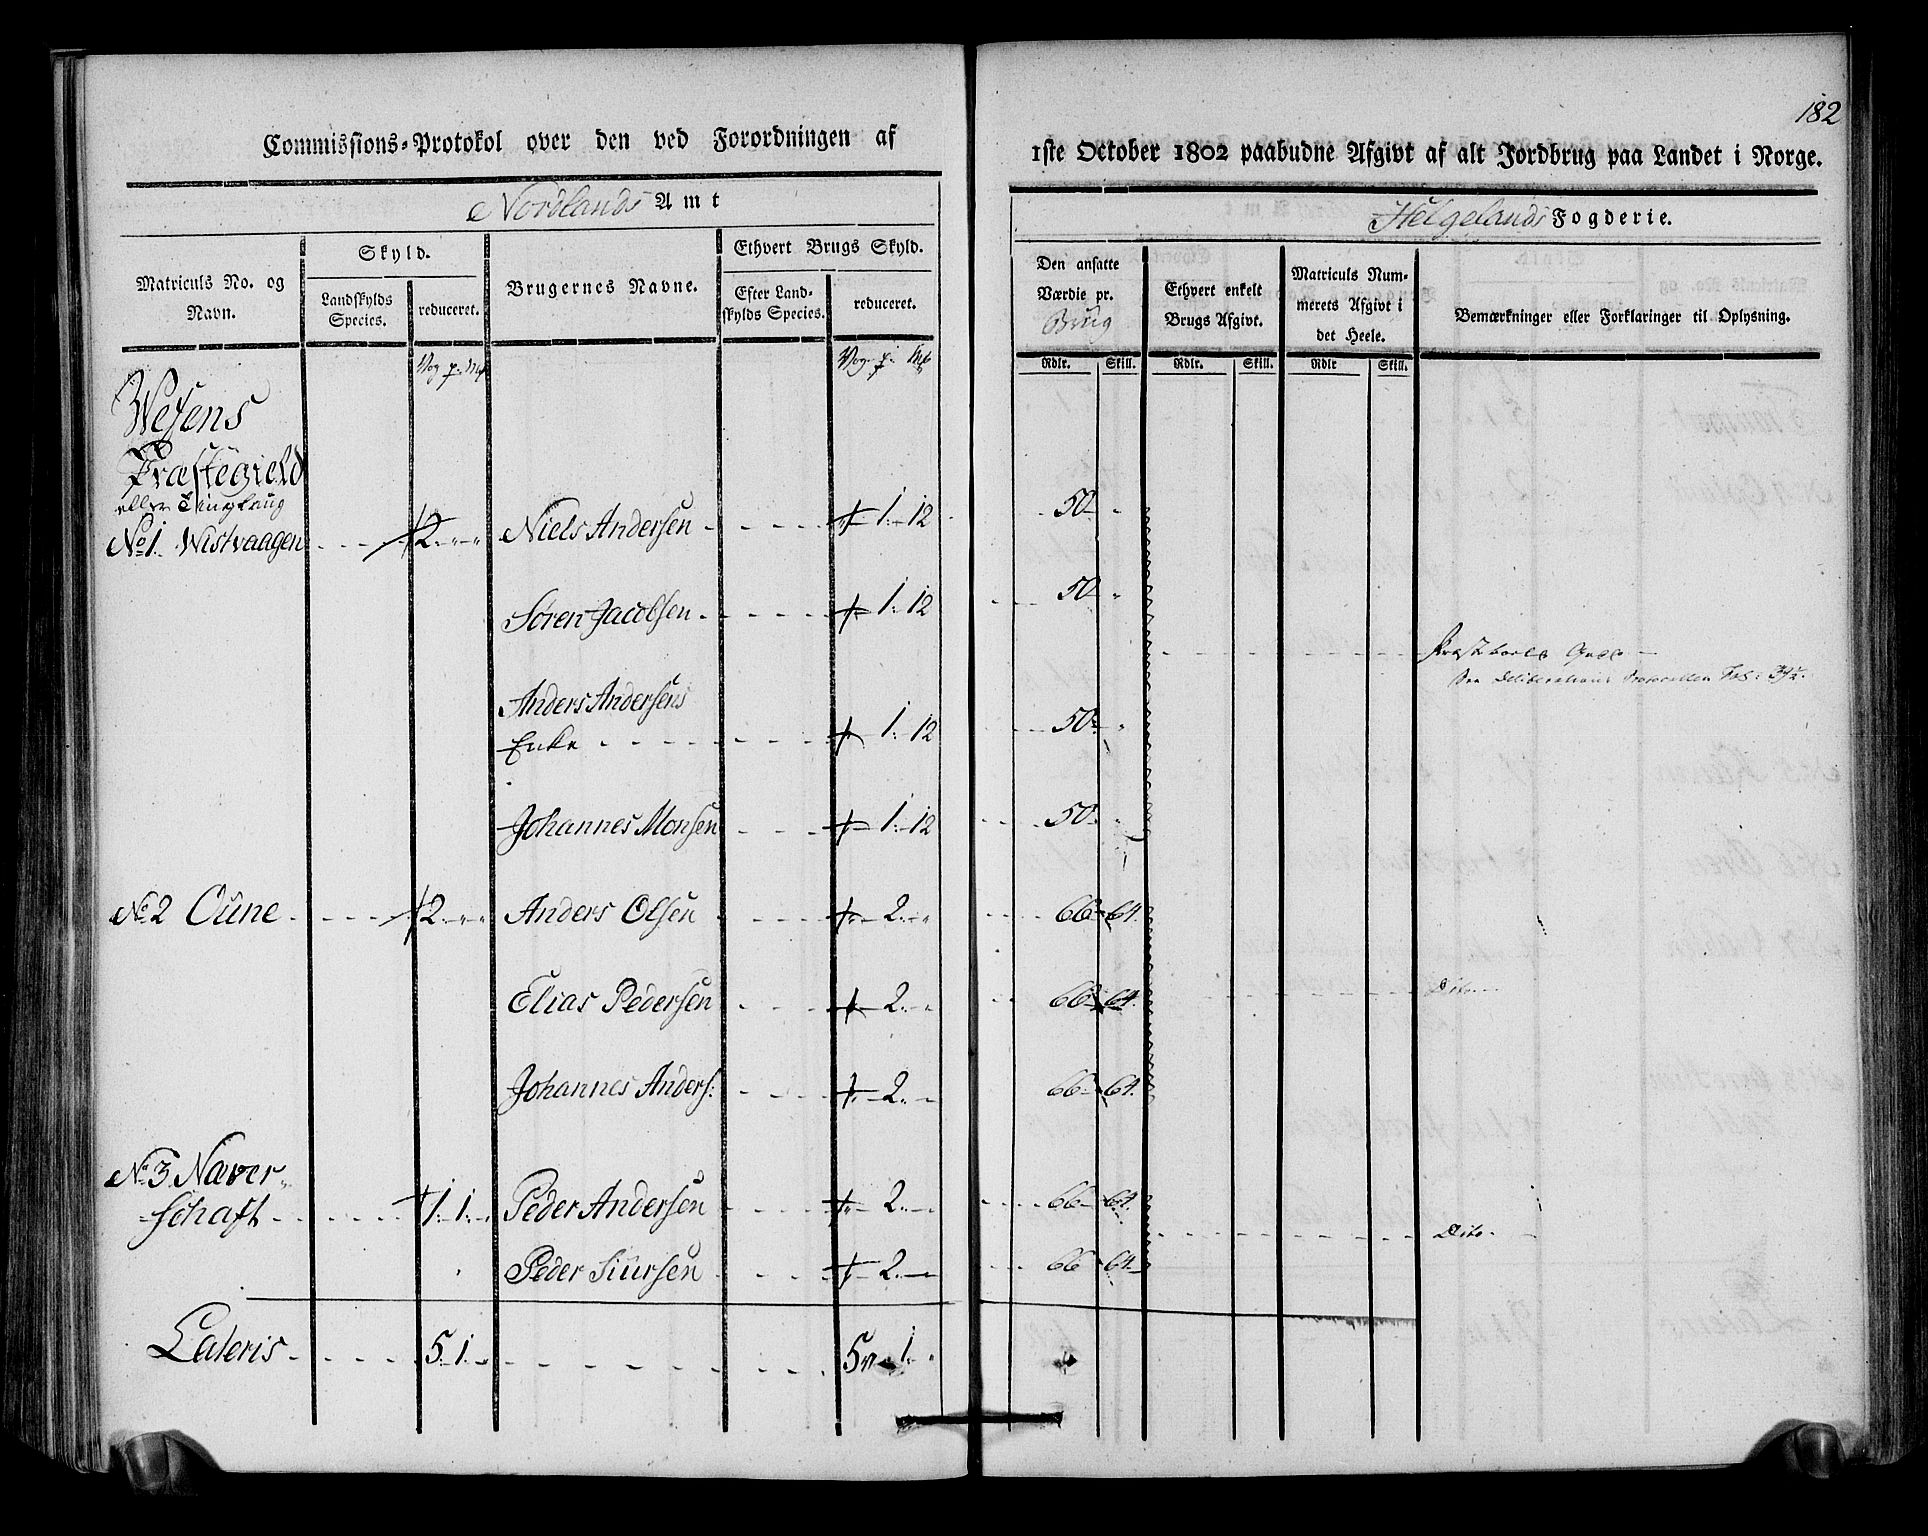 182
Commissions-Protokol over den ved Forordningen af
1ste October 1802 paabudne Afgivt af alt Jordbrug paa Landet i Norge.
Nordlands Amt
Helgelands Fogderie.
Matriculs No. og Navn.
Skyld.
Landskylds Species.
reduceret.
Brugernes Navne.
Ethvert Brugs Skyld.
Efter Landskylds Species.
reduceret.
Den ansatte Værdie pr. Brug
Ethvert enkelt Brugs Afgivt.
Matriculs Nummerets Afgivt i det Heele.
Bemærkninger eller Forklaringer til Oplysning.
Vog p. Mk
Vog p. Mk
Rdlr. Skill. Rdlr. Skill. Rdlr Skill.
Wefens
Præstegield
eller Tinglaug
No 1. Wistvaagen 2 Niels Andersen 1. 12 50
Søren Jacobsen 1. 12 50
Anders Andersens
Enke 1. 12 50
Johannes Monsen 1. 12 50
No 2 Oune 2 Anders Olsen 2 66 64.
Elias Pedersen 2 66 64. Dito
Johannes Anders: 2 66 64.
No 3 Naver-
schaft 1. 1 Peder Andersen 2 66 64.
Dito
Peder Siursen 2 66 64.
Lateris 5. 1 5 1